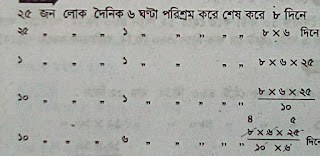 ২৫ জন লোক দৈনিক ৬ ঘণ্টা পরিশ্রম করে শেষ করে ৮ দিনে
২৫ " " " ১ " " " " " ৮ × ৬ দিনে
১ " " " ১ " " " " " ৮ × ৬ × ২৫
১০ " " " ১ " " " " " ৮ × ৬ × ২৫
১০
৪ ৫
১০ " " " ৬ " " " " " ৮ × ৬ × ২৫ দিনে
১০ × ৬